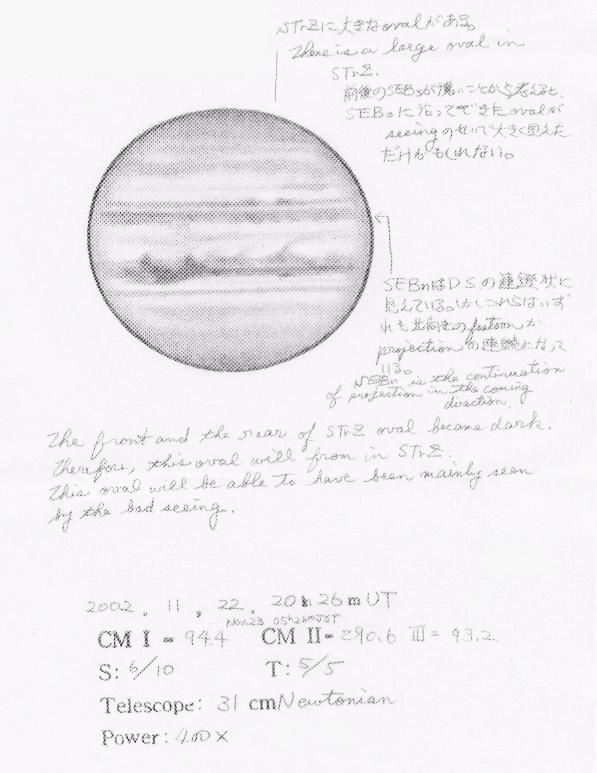 STrZに大きなovalがある。
There is a large oval in
STrZ.
前後のSEBsが薄いことから考えると、
SEBsに沿ってできたovalが
seeingのせいで大きく見えた
だけかもしれない。
SEBnはD.S.の連鎖状に
見えている。しかしこれらはいず
れも北向きのfestoonか
projectionの連続となって
いる。
SEBn is the continuation
of projection in the coming
direction.
The front and the rear of STrZ oval became dark.
Therefore, this oval will from in STrZ.
This oval will be able to have been mainly seen
by the bad seeing.
2002. 11. 22. 20h 26m UT
Nov.23 05h26m JST
CM I = 94.4 CM II= 290.6 III= 93.2
S: 6/10 T: 5/5
Telescope: 31 cm Newtonian
Power: 400×